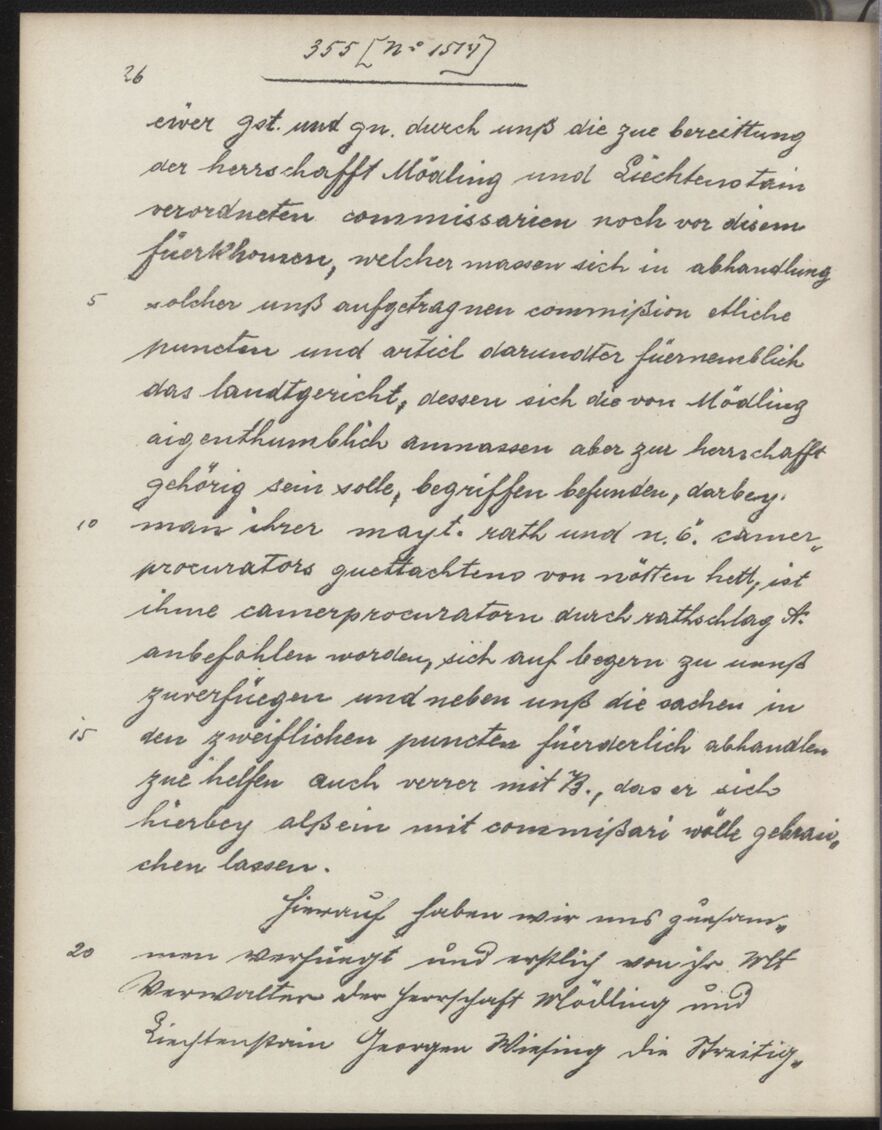 355 [No 1514]
26
eüver gst. und gn. durch unß die zue bereittung
der herrschafft Mödling und Liechtenstain
verordneten commissarien noch vor disem
füerkhomen, welcher massen sich in abhandlung
5 solcher unß aufgetragnen commißion etliche
puncten und articl darundter füernemblich
das landtgericht, dessen sich die von Mödling
aigenthumblich anmassen aber zur herrschafft
gehörig sein solle, begriffen befunden, darbey
10 man ihrer mayt. rath und n. ö. camer„
procurators guettachtens von nötten hett, ist
ihme camerprocuratorn durch rathschlag A.
anbefohlen worden, sich auf begern zu unnß
zuverfüegen und neben unß die sachen in
15 den zweiflichen puncten füerderlich abhandlen
zue helfen auch verrer mit B., das er sich
hierbey alß ein mit commißari wölle gebrau„
chen lassen.
Hierauf haben wir uns zuesam„
20 men verfüegt und erstlich von ihr Mt
Verwalter der Herrschaft Mödling und
Liechtenstain Georgen Wiesing die Streitig„